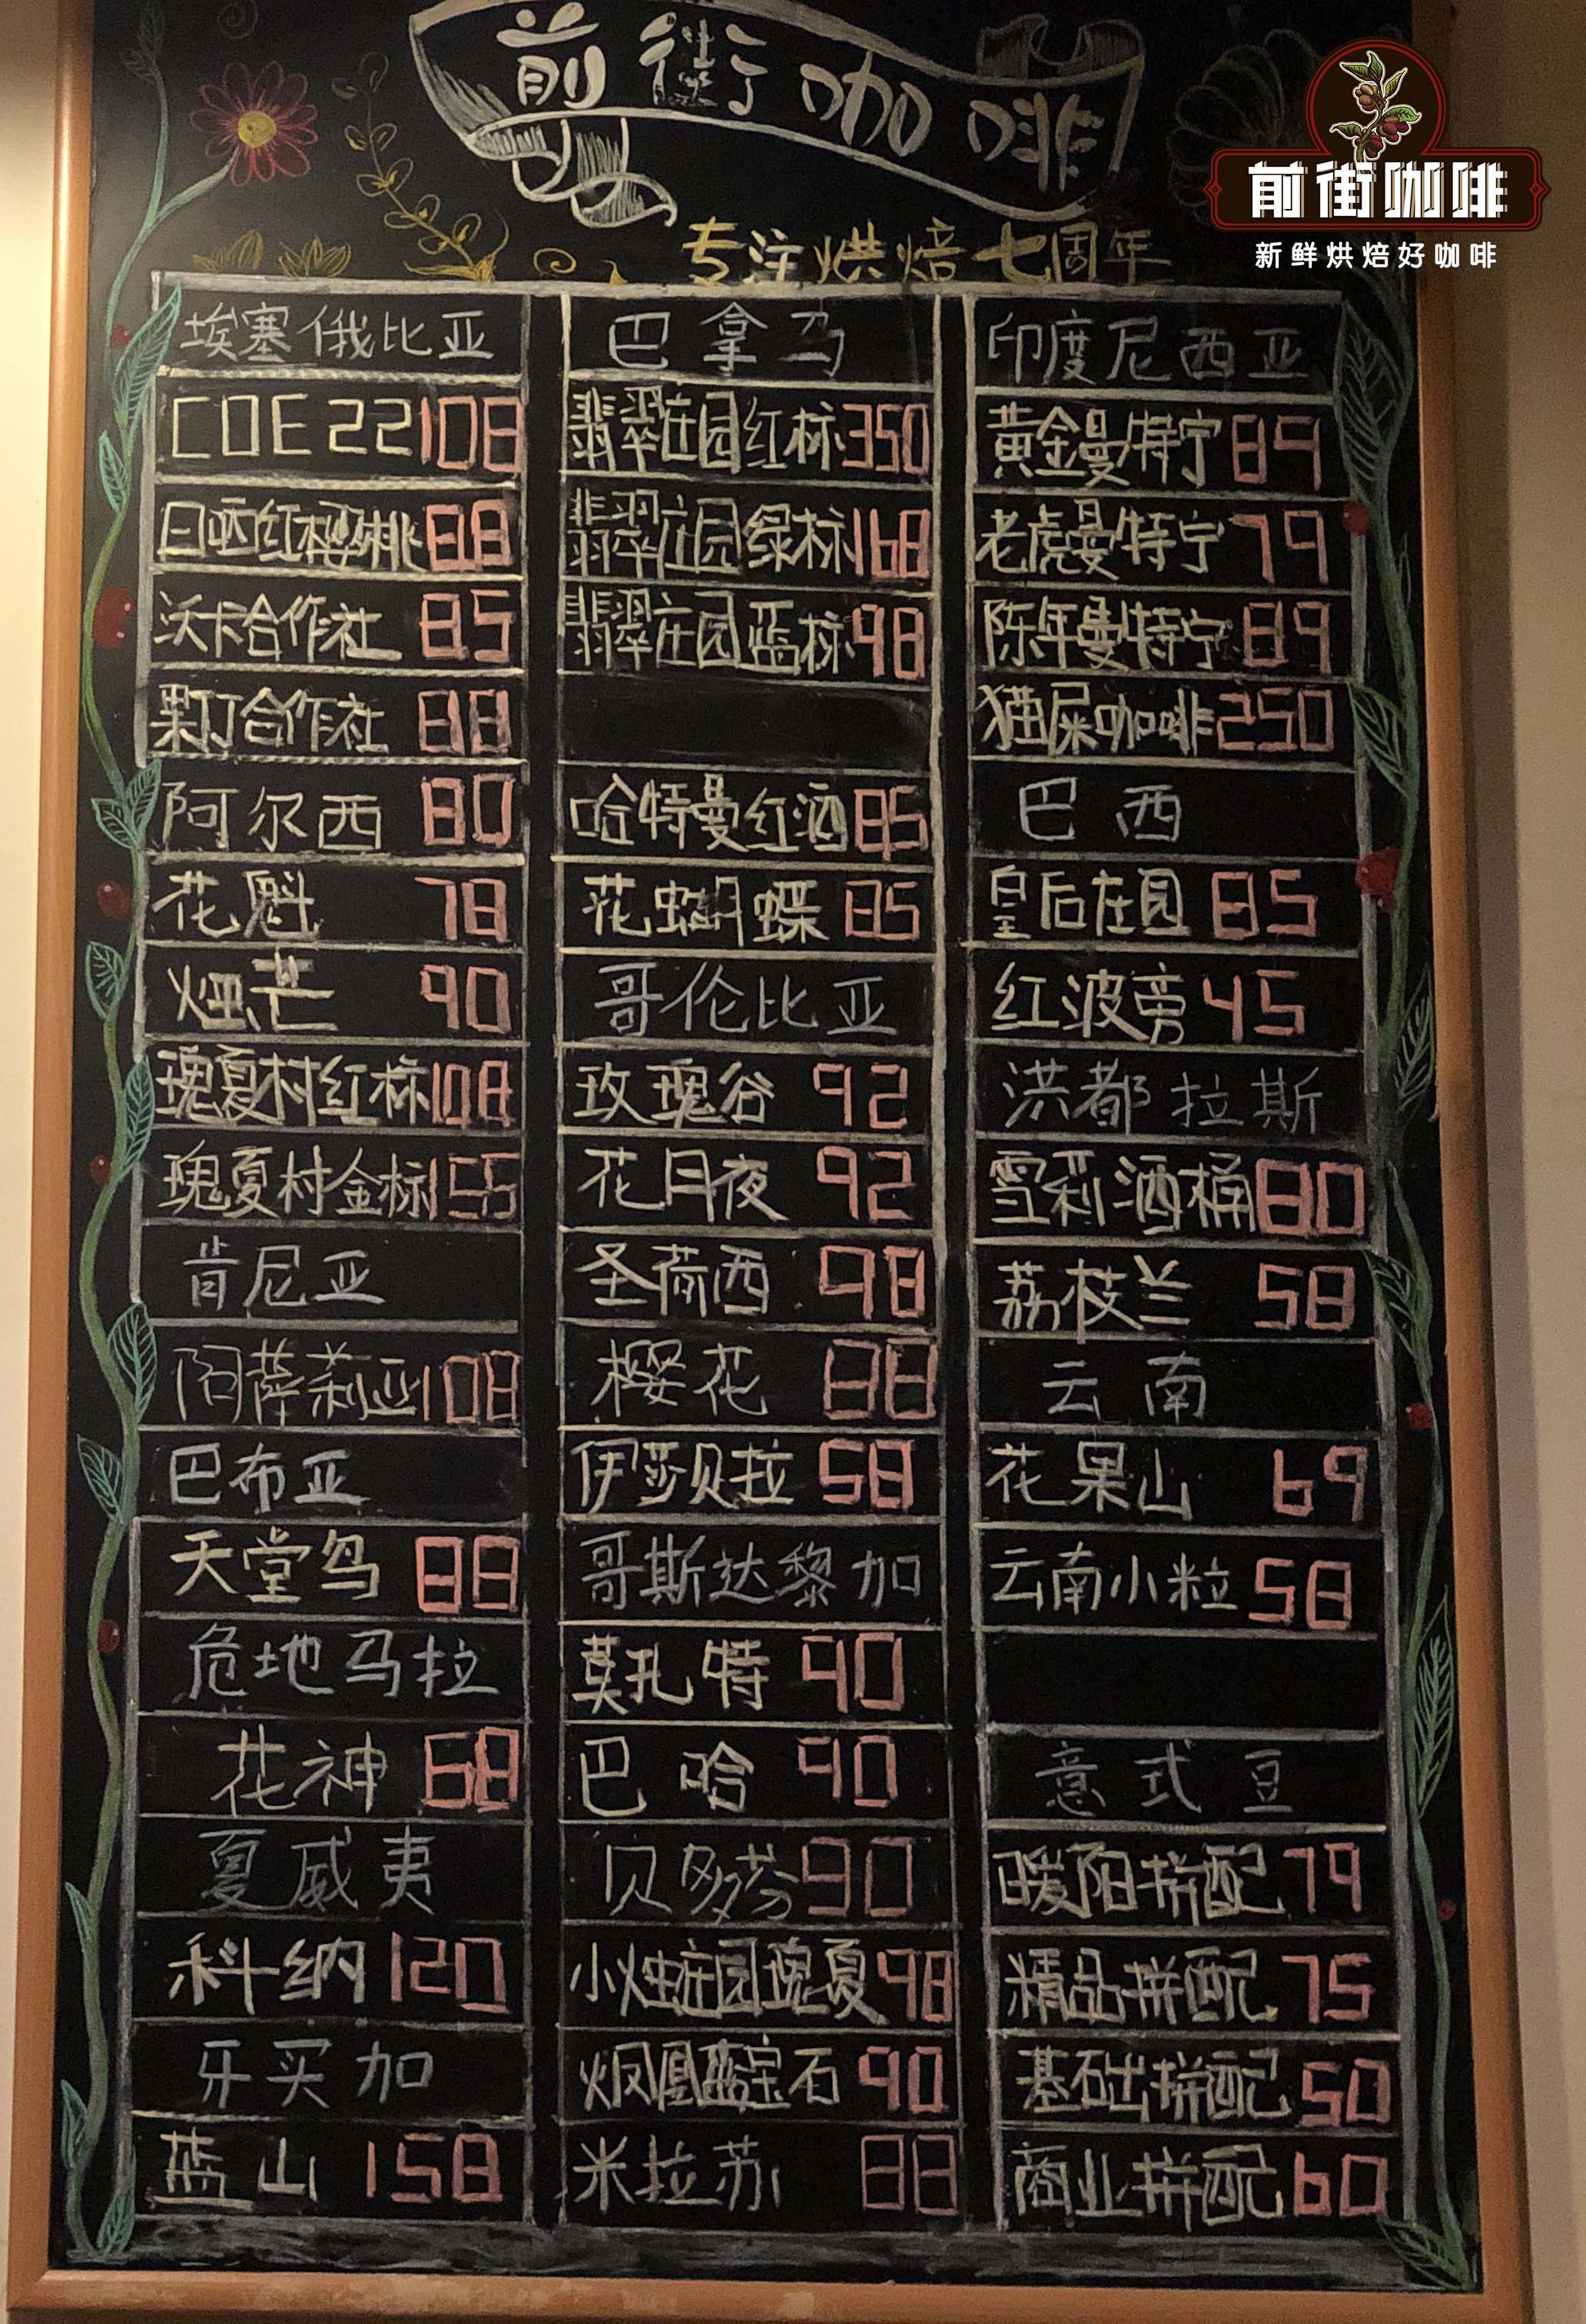 前街咖啡
前街咖啡
新鲜烘焙好咖啡
专注烘焙七周年
埃塞俄比亚
COE22 108
日晒红樱桃 88
沃卡合作社 85
果丁合作社 88
阿尔西 80
花魁 78
烛芒 90
瑰夏村红标 108
瑰夏村金标 155
肯尼亚
阿萨莉亚 108
巴布亚
天堂鸟 88
危地马拉
花神 68
夏威夷
科纳 120
牙买加
蓝山 158
巴拿马
翡翠庄园红标 350
翡翠庄园绿标 168
翡翠庄园蓝标 98
哈特曼红酒 85
花蝴蝶 85
哥伦比亚
玫瑰谷 92
花月夜 92
圣荷西 98
樱花 88
伊莎贝拉 58
哥斯达黎加
莫扎特 90
巴哈 90
贝多芬 90
小烛庄园瑰夏 98
火凤凰蓝宝石 90
米拉苏 88
印度尼西亚
黄金曼特宁 89
老虎曼特宁 79
陈年曼特宁 89
猫屎咖啡 250
巴西
皇后庄园 85
红波旁 45
洪都拉斯
雪莉酒桶 80
荔枝兰 58
云南
花果山 69
云南小粒 58
意式豆
暖阳拼配 79
精品拼配 75
基础拼配 50
商业拼配 60